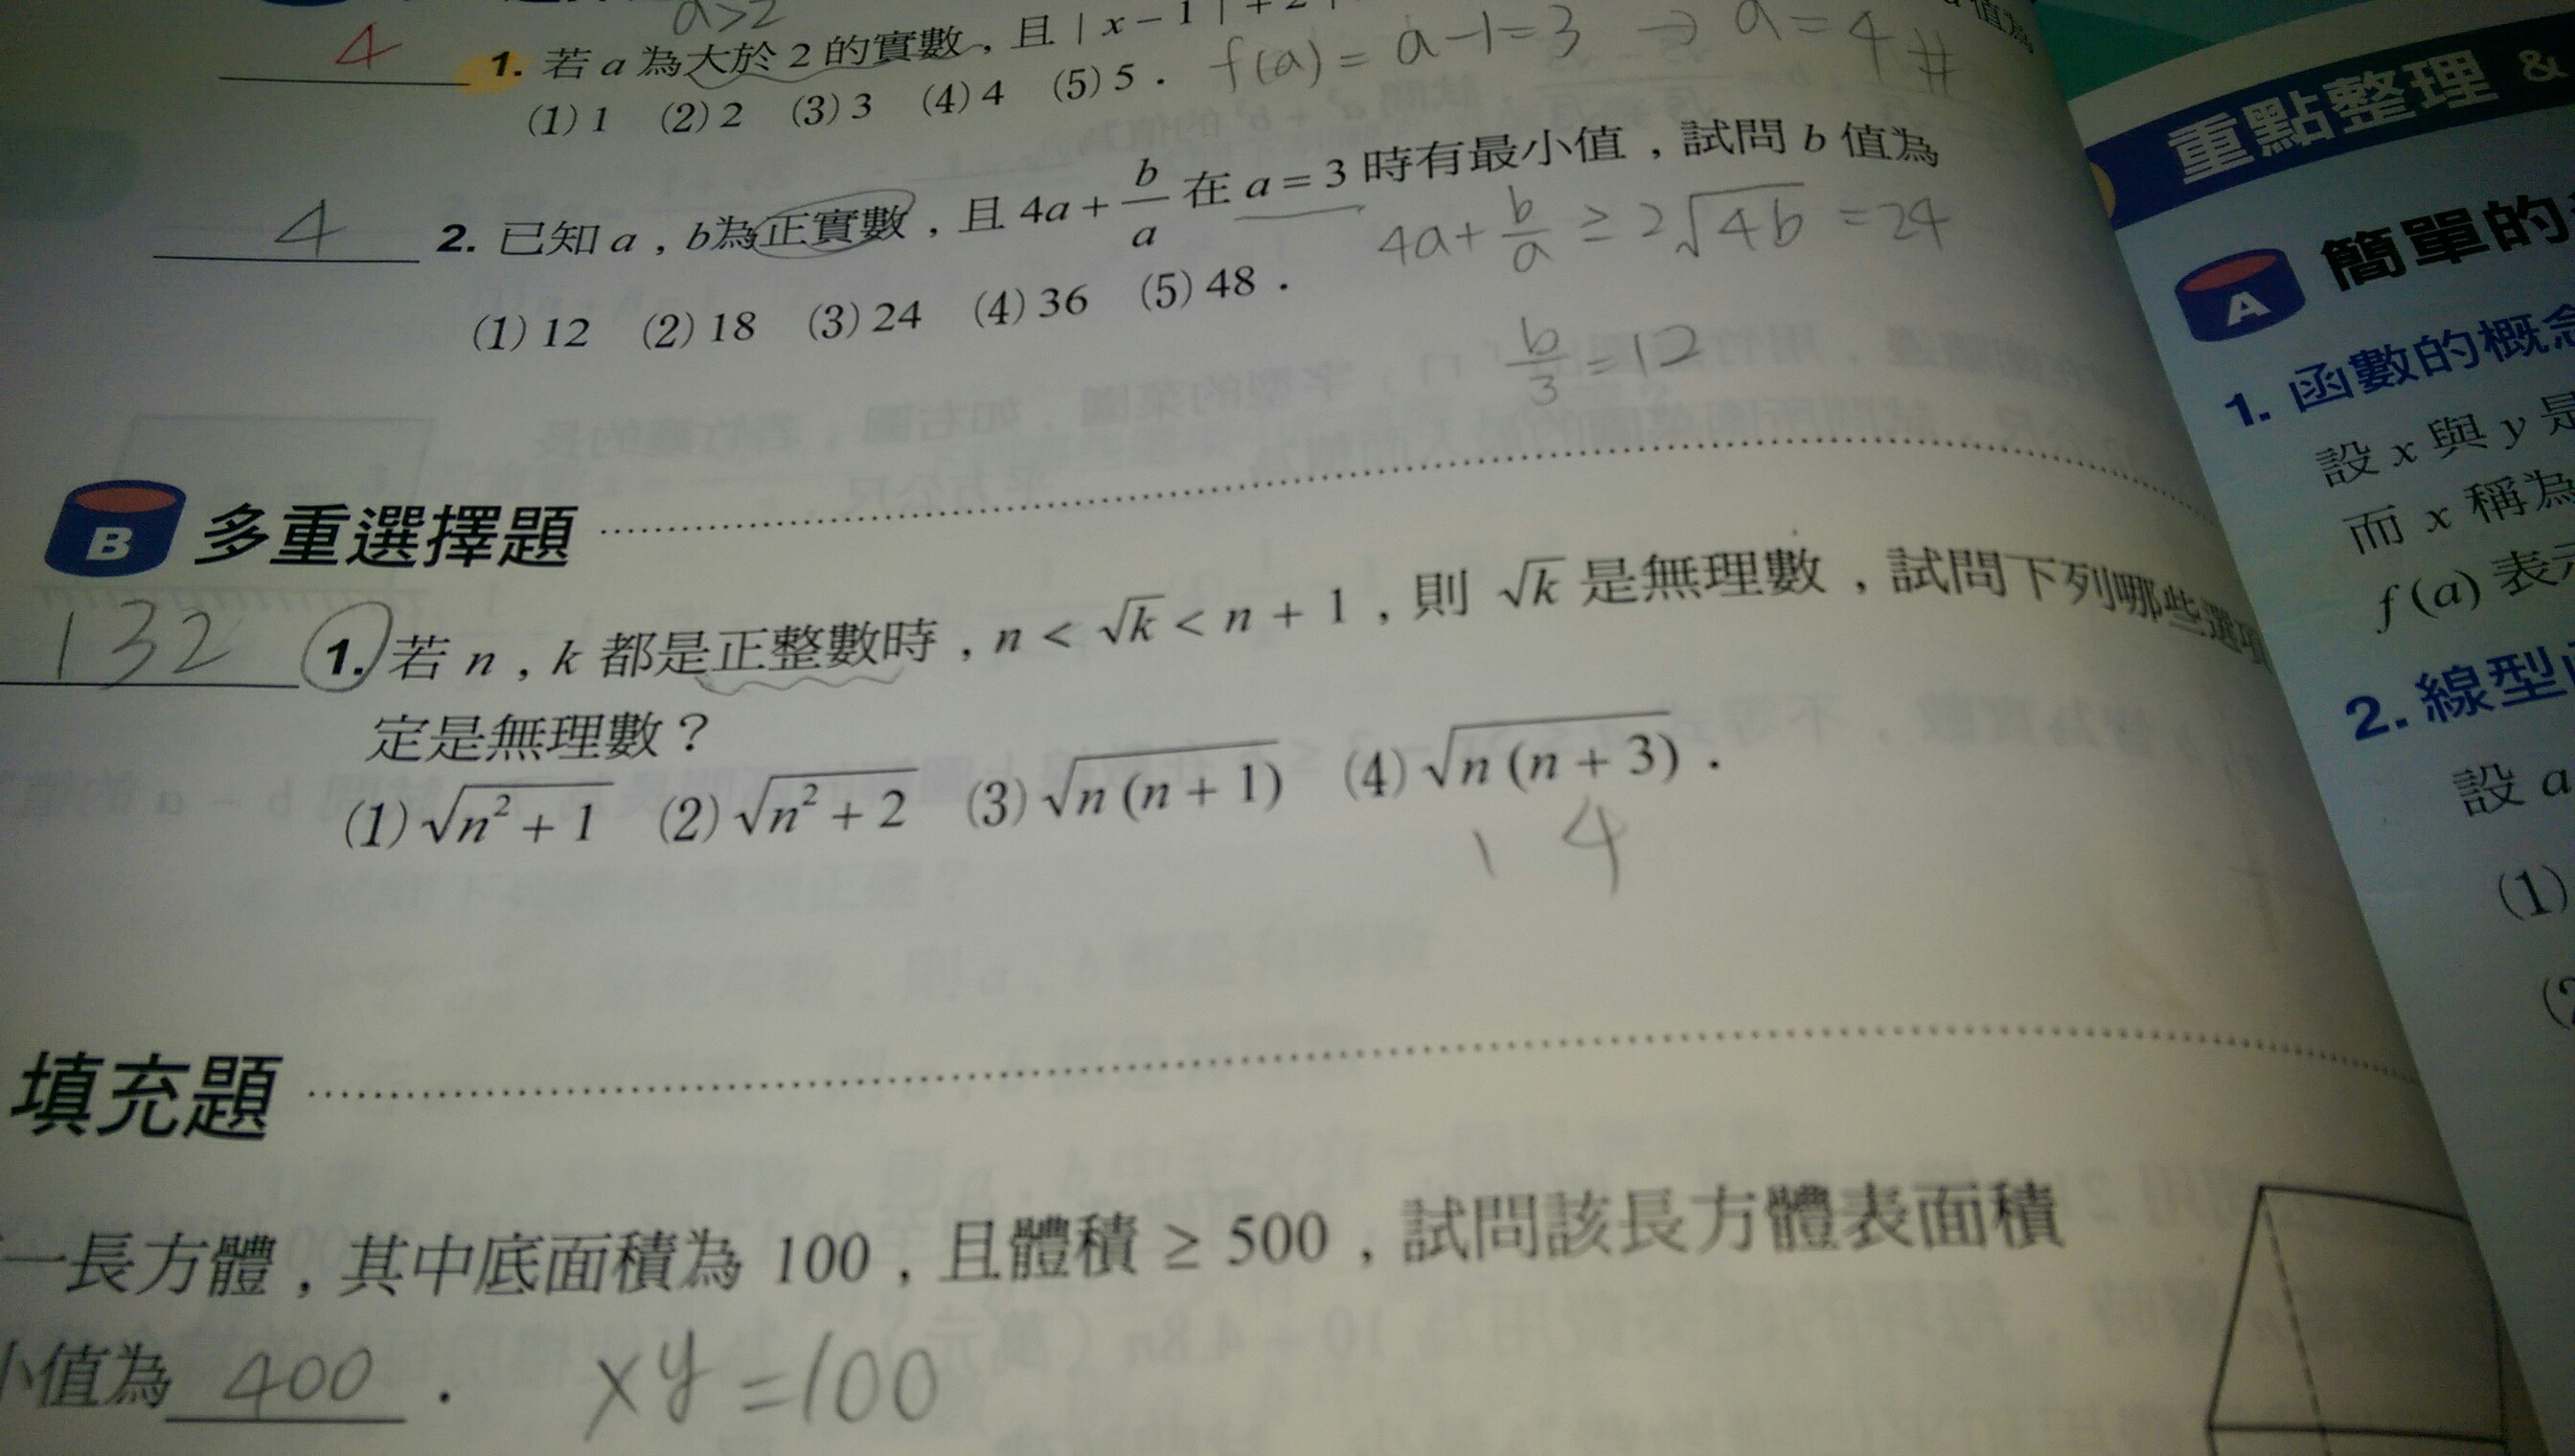 a>2
4
1. 若 a 為大於 2 的實數，且 | x − 1 | + 2
f(a) = a−1=3 → a=4 #
(1) 1 (2) 2 (3) 3 (4) 4 (5) 5 .
4
2. 已知 a , b為正實數，且 4a + b/a 在 a = 3 時有最小值，試問 b 值為
4a + b/a ≥ 2√4b = 24
(1) 12 (2) 18 (3) 24 (4) 36 (5) 48 .
b/3 = 12
B 多重選擇題
132
1. 若 n , k 都是正整數時，n < √k < n + 1，則 √k 是無理數，試問下列哪些選項
定是無理數？
(1) √(n² + 1) (2) √(n² + 2) (3) √(n (n + 1)) (4) √(n (n + 3)) .
1 4
填充題
一長方體，其中底面積為 100，且體積 ≥ 500，試問該長方體表面積
小值為 400 .
xy = 100
值為
重點整理 &
A 簡單的
1. 函數的概念
設 x 與 y 是
而 x 稱為
f (a) 表示
2. 線型
設 a
(1)